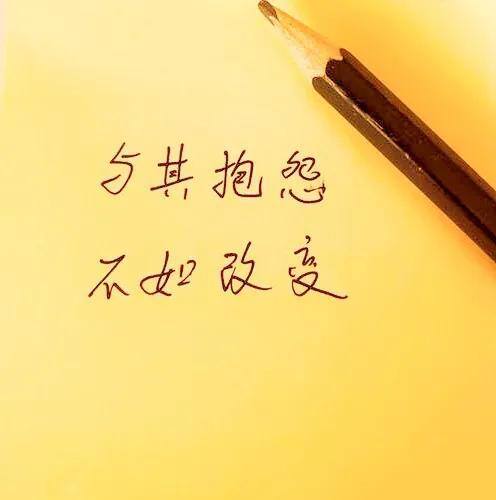 与其抱怨
不如改变